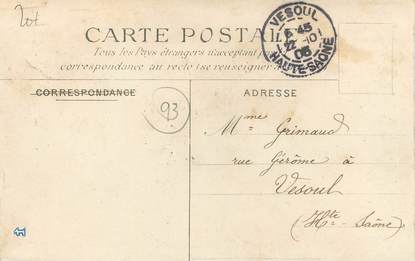 CARTE POSTALE
Tous les Pays étrangers n'acceptant
correspondance au recto (se renseigner
VESOUL
45
22 -10
05
HAUTE-SAÔNE
CORRESPONDANCE
93
ADRESSE
Mme Grimaud
rue Gérôme à
Vesoul
(Hte-Saône)